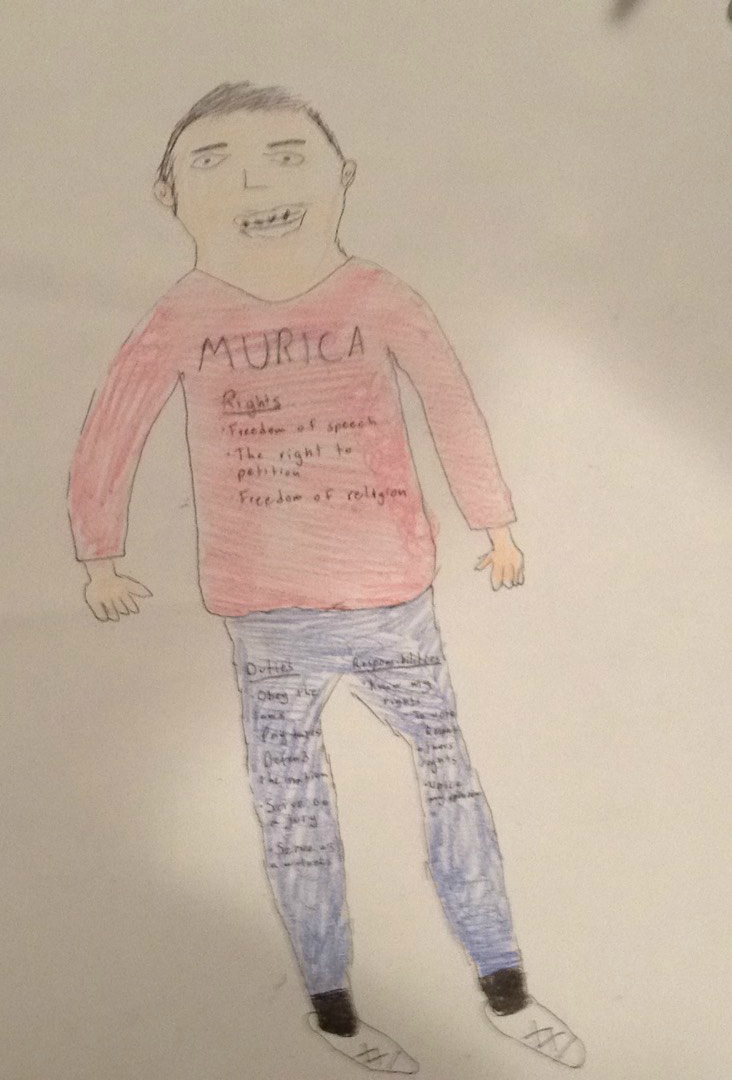 MURICA
Rights
·Freedom of speech
·The right to
petition
Freedom of religion
Duties
·Obey the
laws
Pay taxes
Defend
the nation
·Serve on
a jury
·Serve as
a witness
Responsibilities
·Know my
rights
·To vote
Respect
others
rights
·Voice